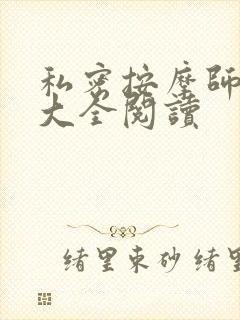 私密按摩師
大全閱讀
緒里束砂緒里